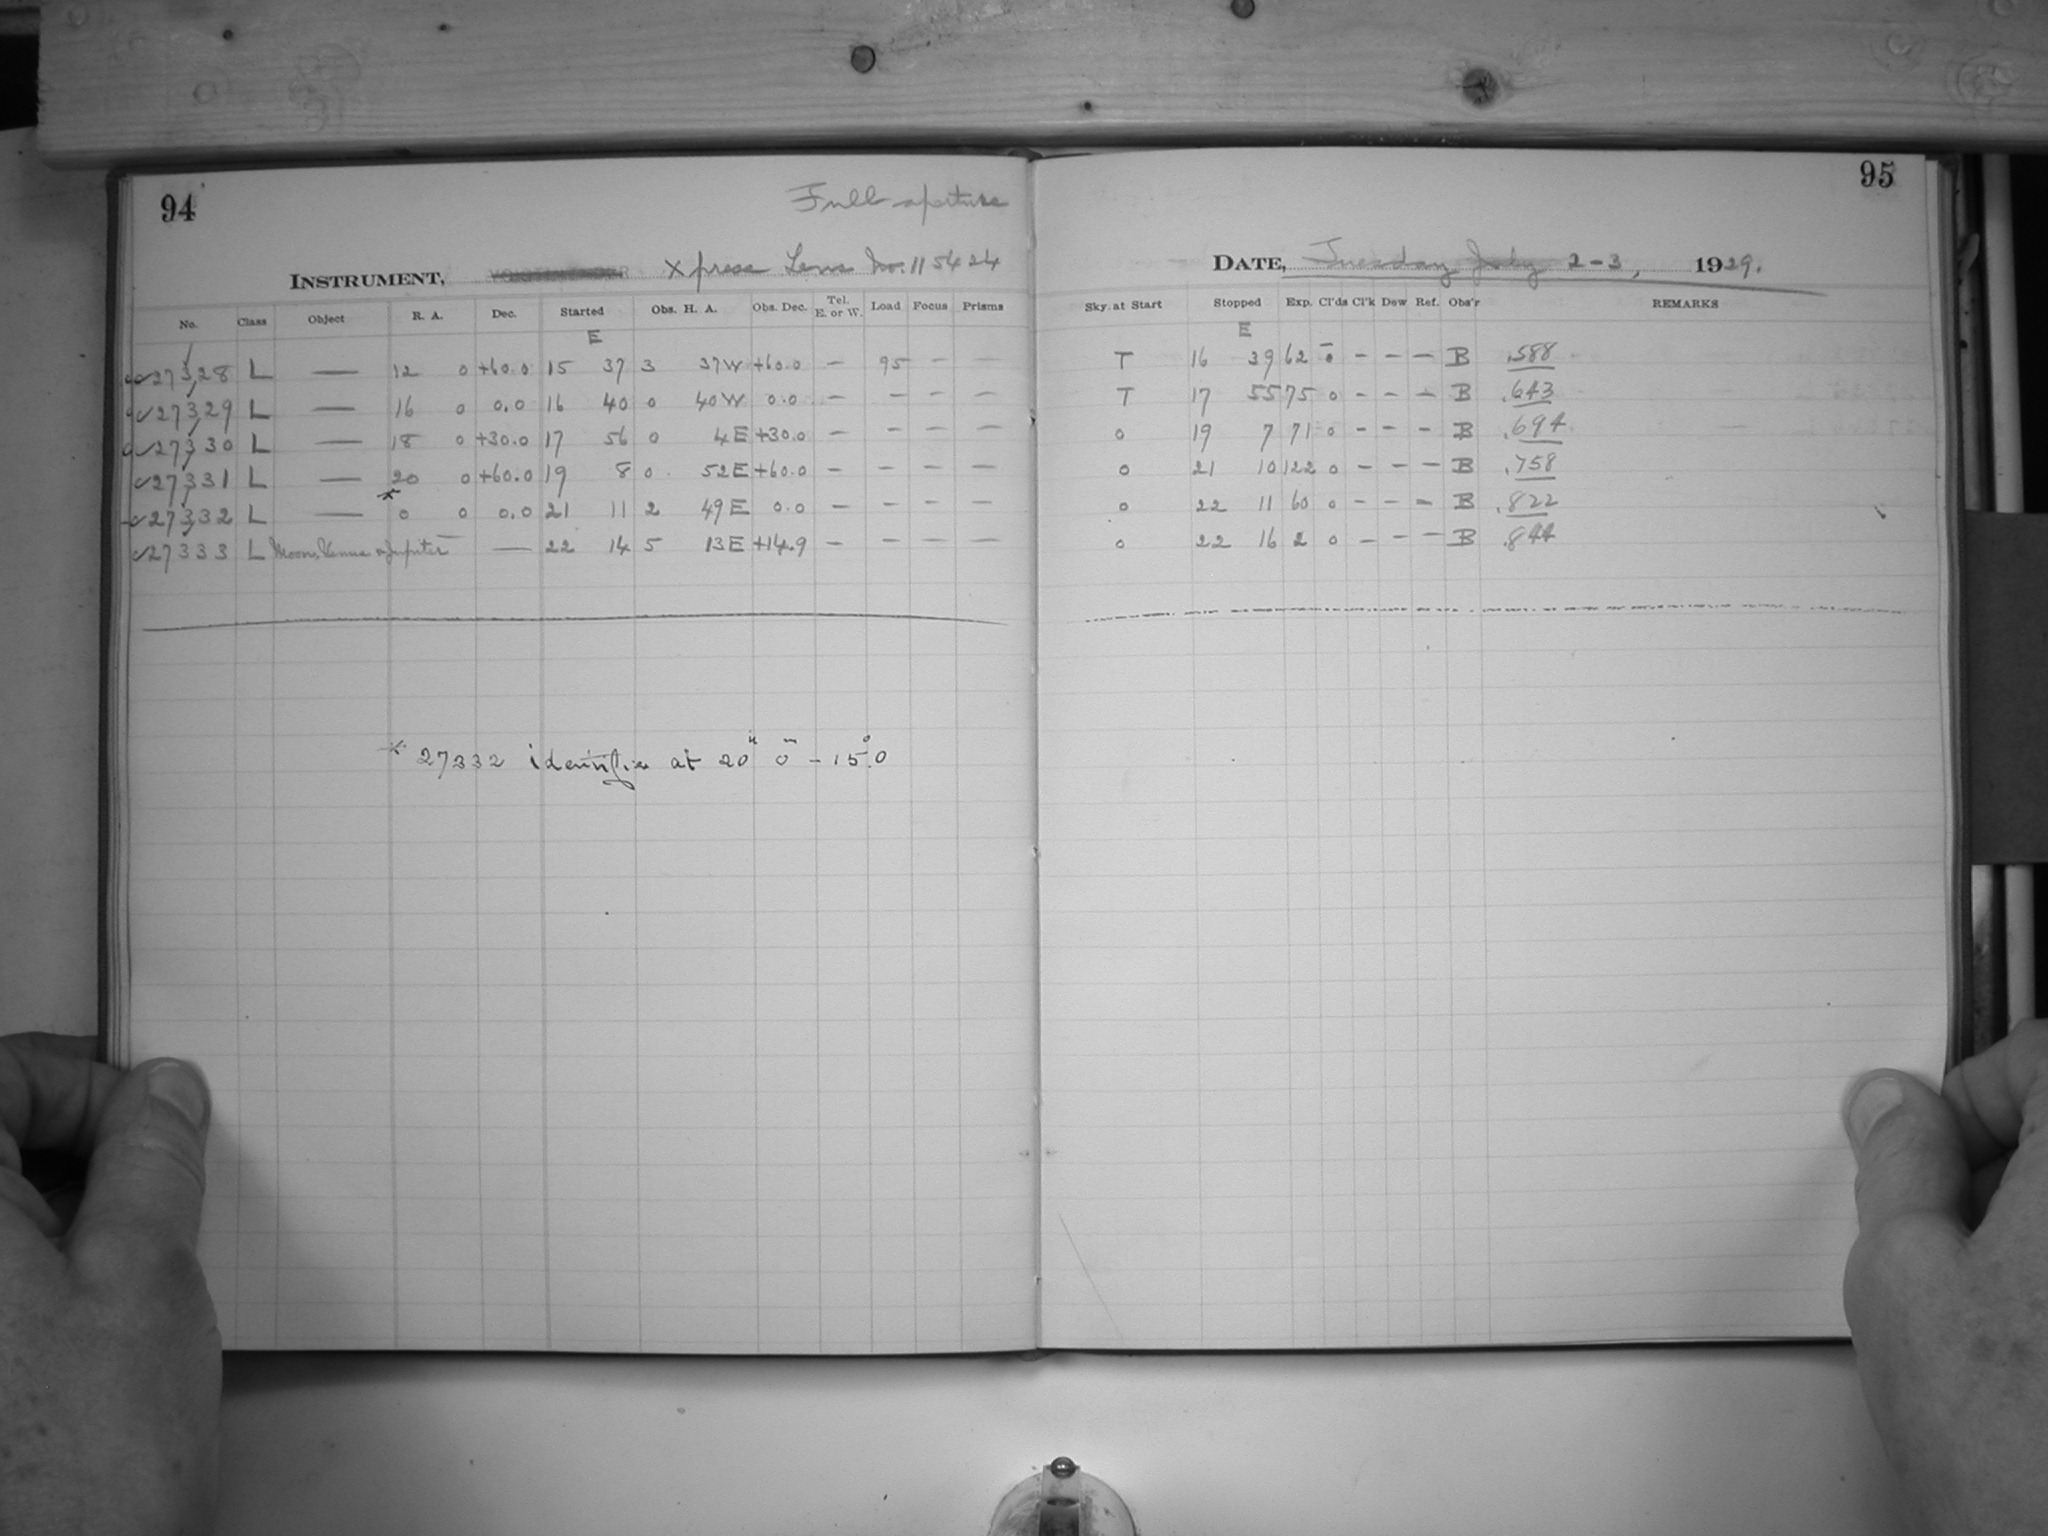 94
Full aperture
INSTRUMENT, Xpress Lens No. 115424
No. Class Object R. A. Dec. Started Obs. H. A. Obs. Dec. Tel. E. or W. Load Focus Prisms
E
27328 L — 12 0 +60.0 15 37 3 37W +60.0 — 95 — —
27329 L — 16 0 0.0 16 40 0 40W 0.0 — — — —
27330 L — 18 0 +30.0 17 56 0 4E +30.0 — — — —
27331 L — 20 0 +60.0 19 8 0 52E +60.0 — — — —
*
27332 L — 0 0 0.0 21 11 2 49E 0.0 — — — —
27333 L Moon, Venus & Jupiter — — 22 14 5 13E +14.9 — — — —
* 27332 identifies at 20h 0m -15°.0
95
DATE, Tuesday July 2-3, 1929.
Sky at Start Stopped Exp. Cl'ds Cl'k Dew Ref. Obs'r REMARKS
E
T 16 39 62 0 — — — B .588
T 17 55 75 0 — — — B .643
0 19 7 71 0 — — — B .694
0 21 10 122 0 — — — B .758
0 22 11 60 0 — — — B .822
0 22 16 2 0 — — — B .844